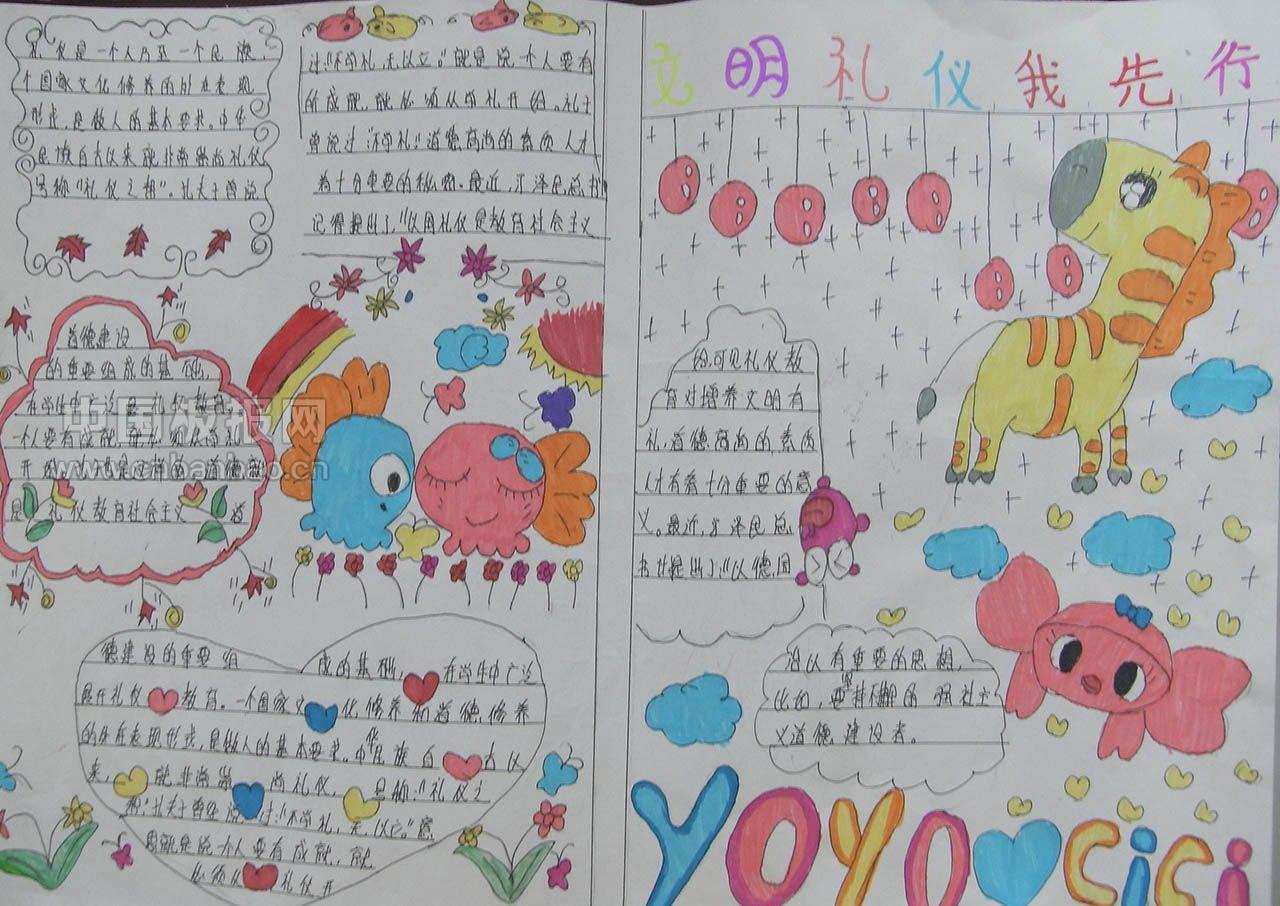 礼仪是一个人乃至一个民族,
个国家文化修养的外在表现
形式,是做人的基本要求。中华
民族自古以来就非常崇尚礼仪
号称"礼仪之相"。孔夫子曾说
过:"不学礼,无以立。"就是说一个人要有
所成就,就必须从学礼开始。孔子
曾说过"不学礼"道德高尚的素质人才
有十分重要的
最近,江泽民总书
记得提出了"以国礼仪是教育社会主义
道德建设
的重要组成的基础,
在学生中广泛展礼仪教育
一个人要有成就就必须从学礼
开始
道德就
是 礼仪教育社会主义 道
德建设的重要组 成的基础,在学生中广泛
展开礼仪 教育。一个国家文 化修养和道德修养
的外在表现形式,是做人的基本要求。中华民族自 古以
来, 就非常崇 尚礼仪, 号称"礼仪之
相"孔夫子曾经说 过:"不学礼,无以立"意
思就是说个人要有成就,就
必须从 礼仪开
文明礼仪我先行
给可见礼仪教
育对培养文明有
礼,道德高尚的素质
人才有着十分重要的意
义。最近,江泽民总
书记提出了"以德国
治以有重要的思想,
比如,要 的 社主
义道德建设者。
YOYO CiCi
中国板报网
www.cnbanbao.cn